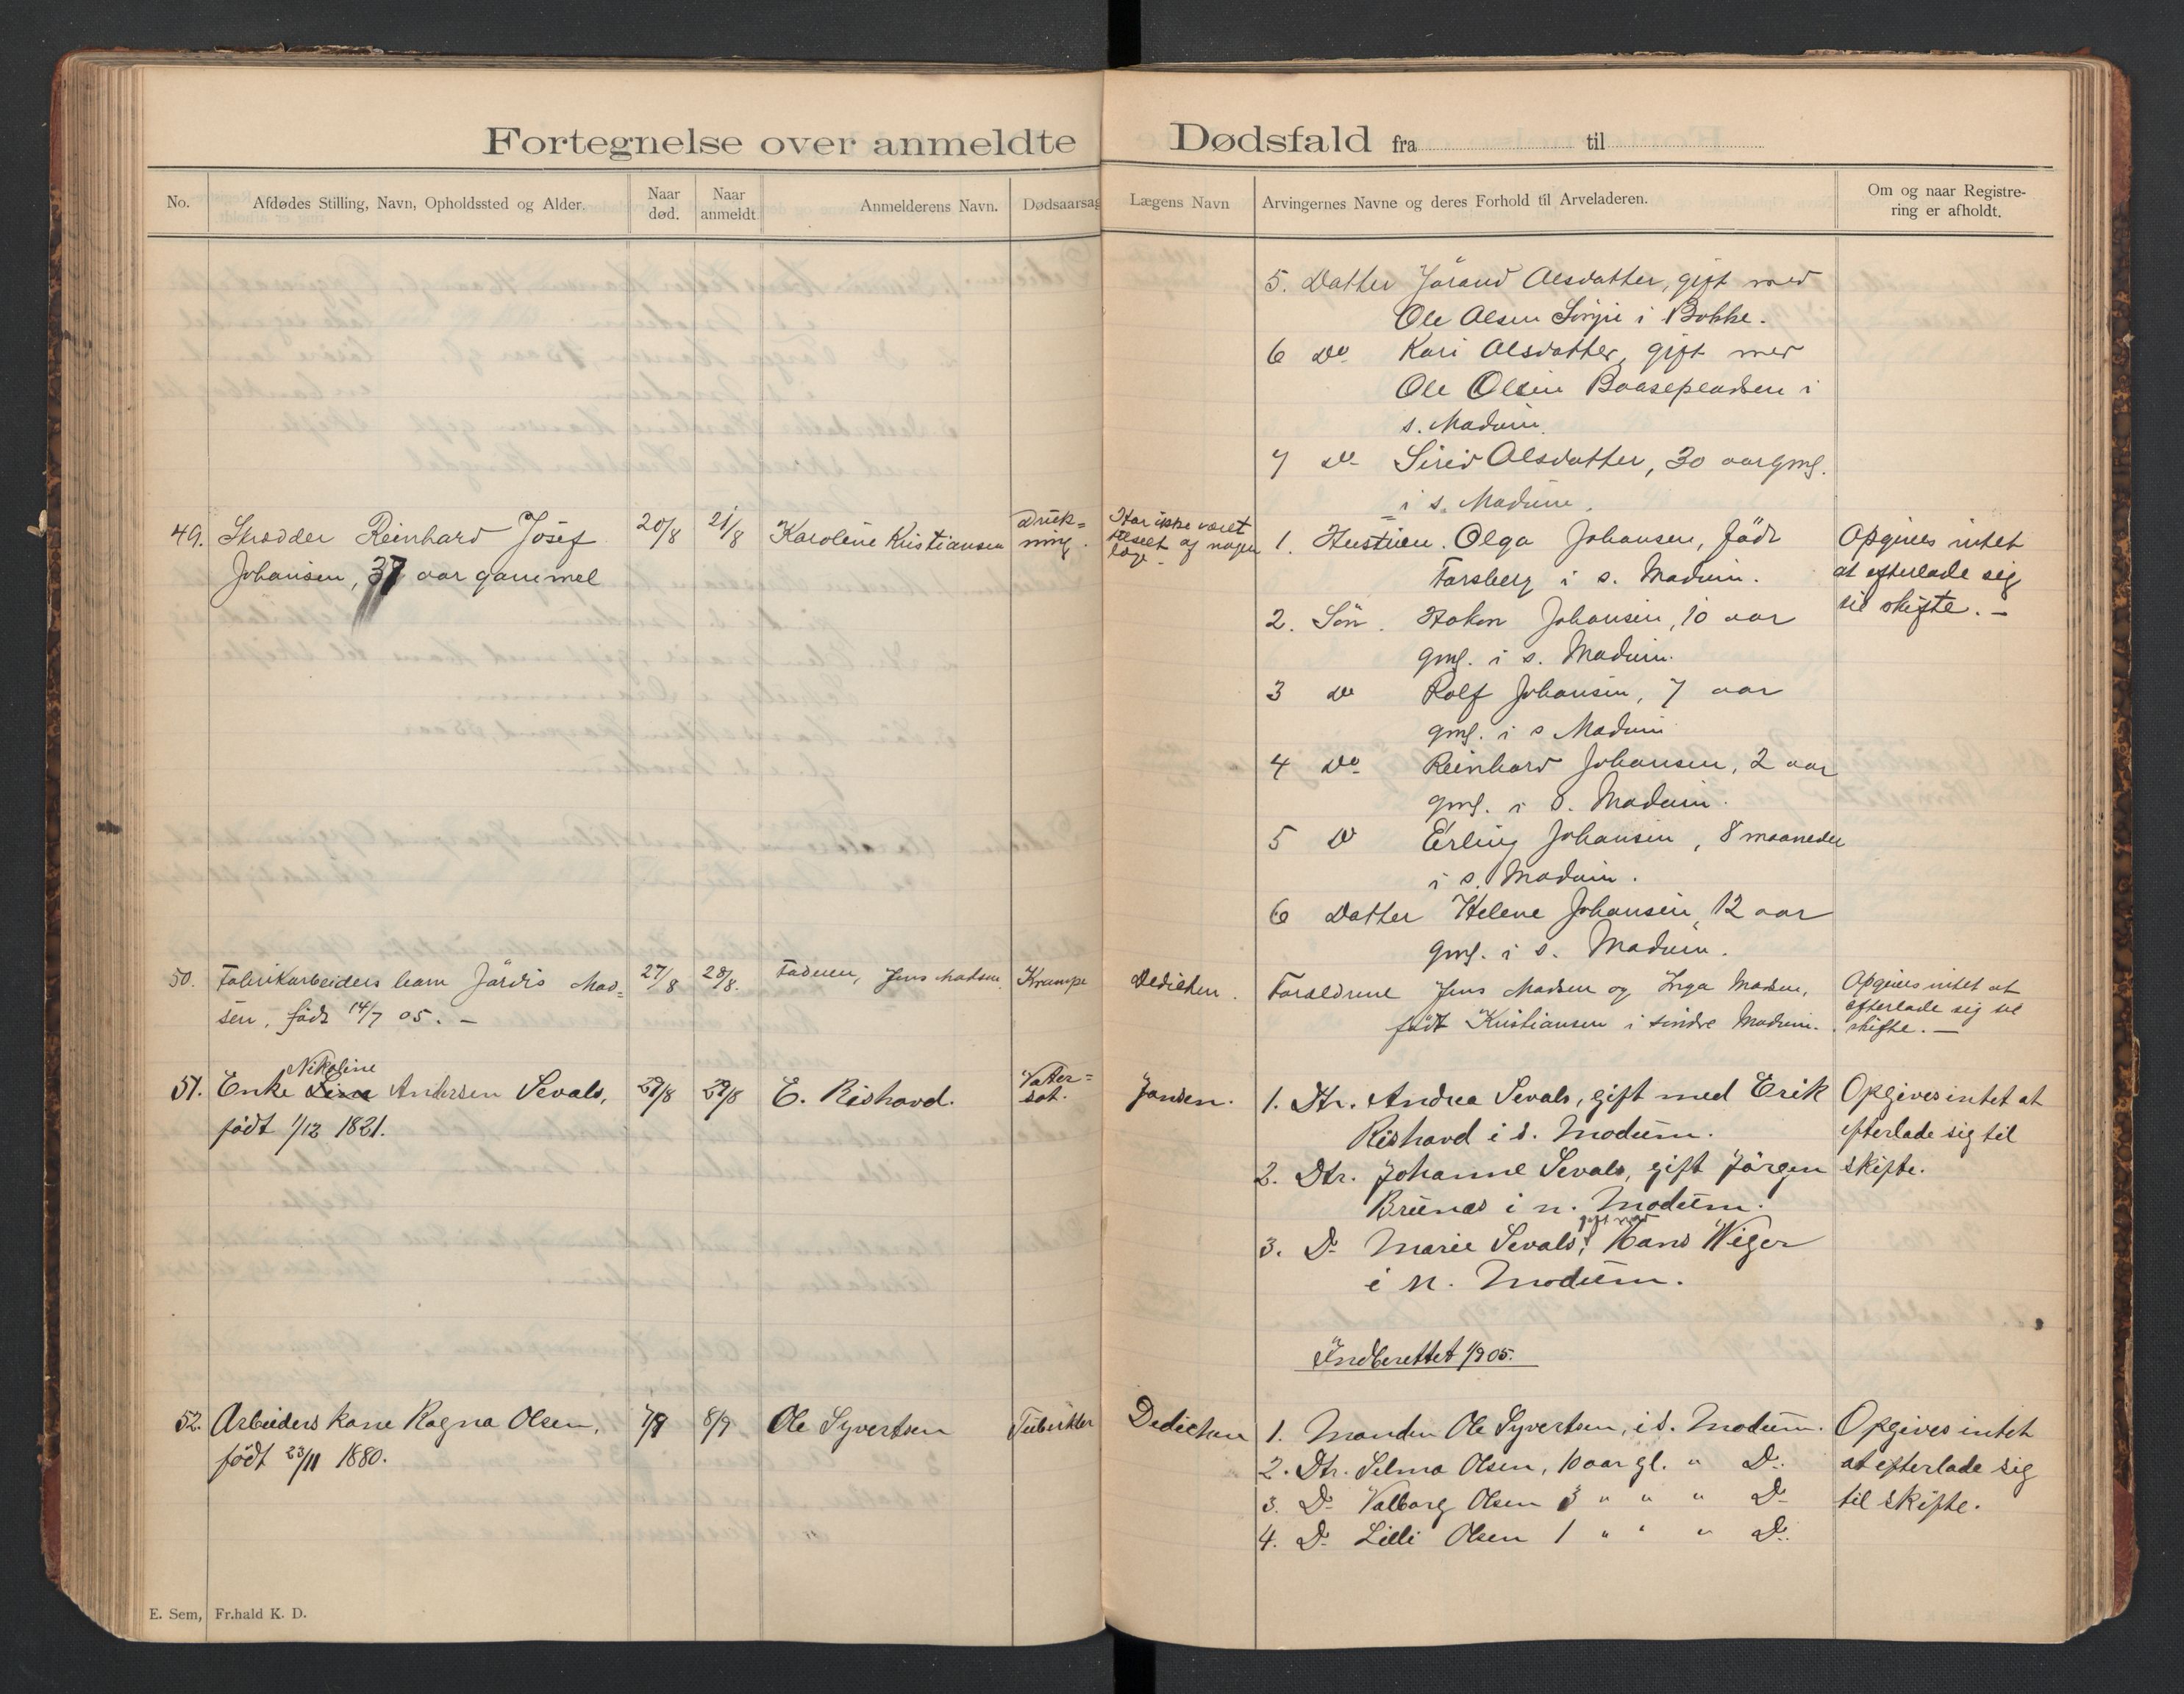 Fortegnelse over anmeldte Dødsfald fra til
No.
Afdødes Stilling, Navn, Opholdssted og Alder.
Naar
død.
Naar
anmeldt
Anmelderens Navn.
Dødsaarsag
Lægens Navn
Arvingernes Navne og deres Forhold til Arveladeren.
Om og naar Registre-
ring er afholdt.
5. Datter Jörand Olsdatter, gift med
Ole Olsen i
6 Do Kari Olsdatter, gift med
Ole Olsen i
s. Modum.
7 Do Sirid Olsdatter, 30 aar gml.
i s. Modum.
49. Skrædder Reinhard Josef
Johansen, 37 aar gammel
20/8
21/8
Karoline Kristiansen
Druk-
ning.
Har ikke været
tilseet af nogen
læge.
1. Hustruen. Olga Johansen, födt
Forsberg i s. Modum.
2. Sön. Hakon Johansen, 10 aar
gml. i s. Modum.
3 Do Rolf Johansen, 7 aar
gml. i s Modum
4 Do Reinhard Johansen, 2 aar
gml. i s. Modum.
5 Do Erling Johansen, 8 maaneder
i s. Modum.
6 Datter Helene Johansen, 12 aar
gml. i s. Modum.
Opgives intet
at efterlade sig
til skifte. -
50. Fabrikarbeiders barn Jördis Mad=
sen, födt 14/7 05. -
27/8
28/8.
Faderen, Jens Madsen.
Krampe
Dedichen.
Forældrene Jens Madsen og Inga Madsen,
födt Kristiansen i söndre Modum.
Opgives intet at
efterlade sig til
skifte. -
Nikoline
51. Enke Andersen Sevals,
födt 1/12 1821.
29/8
29/8
E. Rishovd.
Vater=
sot.
Jansen.
1. Dtr. Andrea Sevals, gift med Erik
Rishovd i s. Modum.
2. Dtr. Johanne Sevals, gift Jörgen
Brunæs i n. Modum.
gift med
3. Do Marie Sevals, Hans Wiger
i n. Modum.
Opgives intet at
efterlade sig til
skifte.
Indberettet 1/9 05.
52. Arbeiders kone Ragna Olsen,
födt 23/11 1880.
7/9
8/9
Ole Syvertsen
Tuberkler
Dedichen
1. Manden Ole Syvertsen, i s. Modum.
2. Dtr. Selma Olsen, 10 aar gl. " Do.
3. Do Valborg Olsen 3 " " " Do
4. Do Lilli Olsen 1 " " " Do.
Opgives intet
at efterlade sig
til skifte.
E. Sem, Fr.hald K. D.